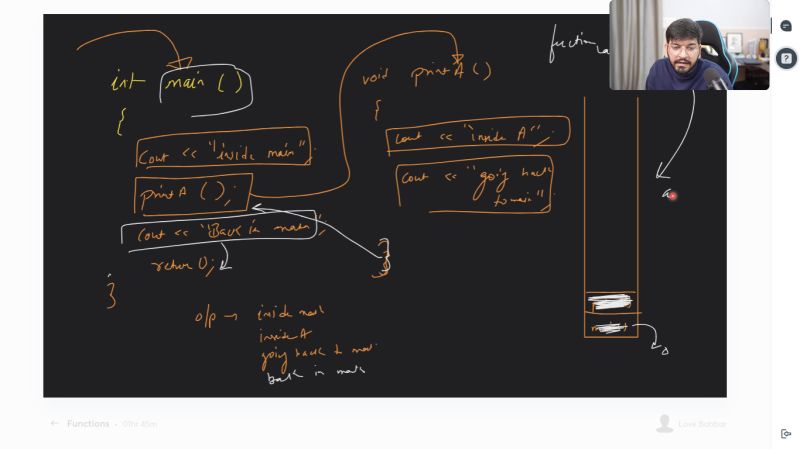 int main ()
{
cout << "inside main";
printA ();
cout << "Back in main";
return 0;
}
void printA ()
{
cout << "inside A";
cout << "going back
to main";
}
o/p → inside main
inside A
going back to main
back in main
function
← Functions • 01hr 45m
Love Babbar